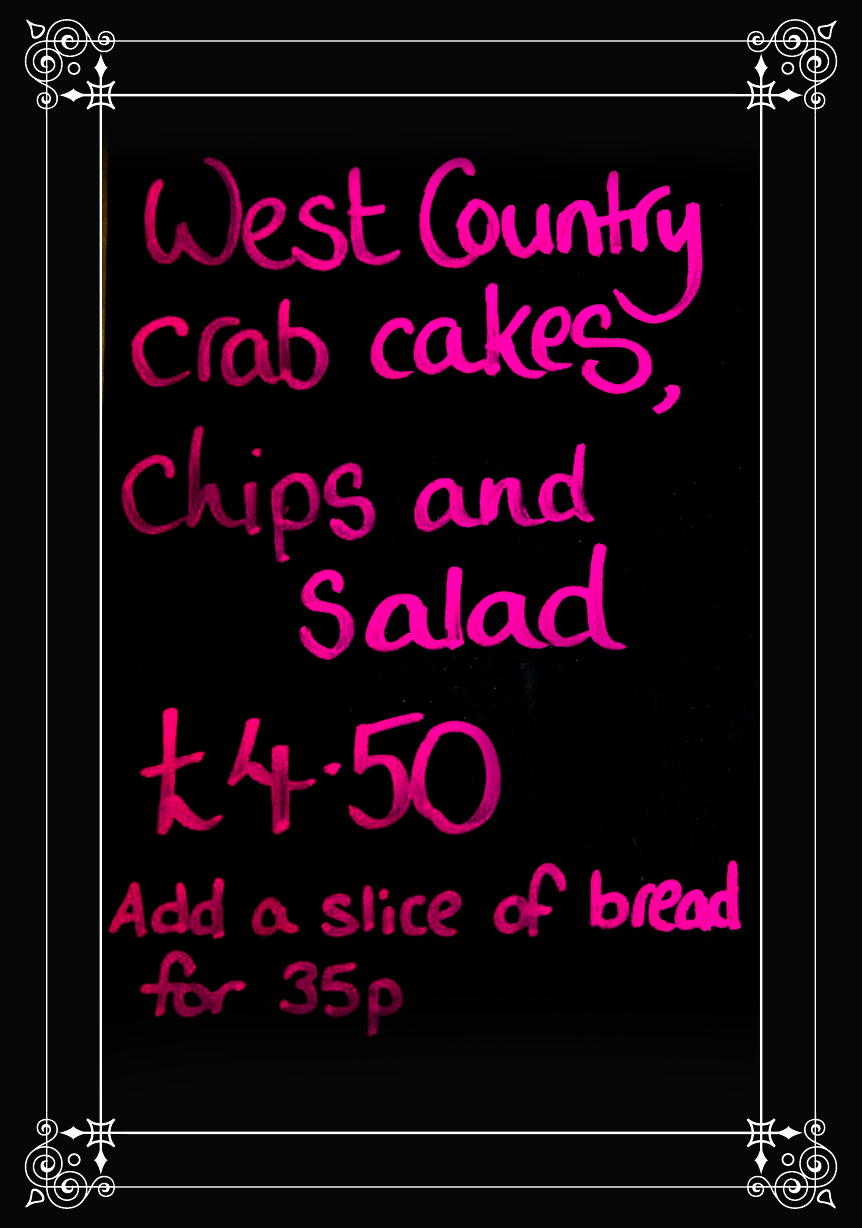 West Country
crab cakes,
Chips and
Salad
£4.50
Add a slice of bread
for 35p